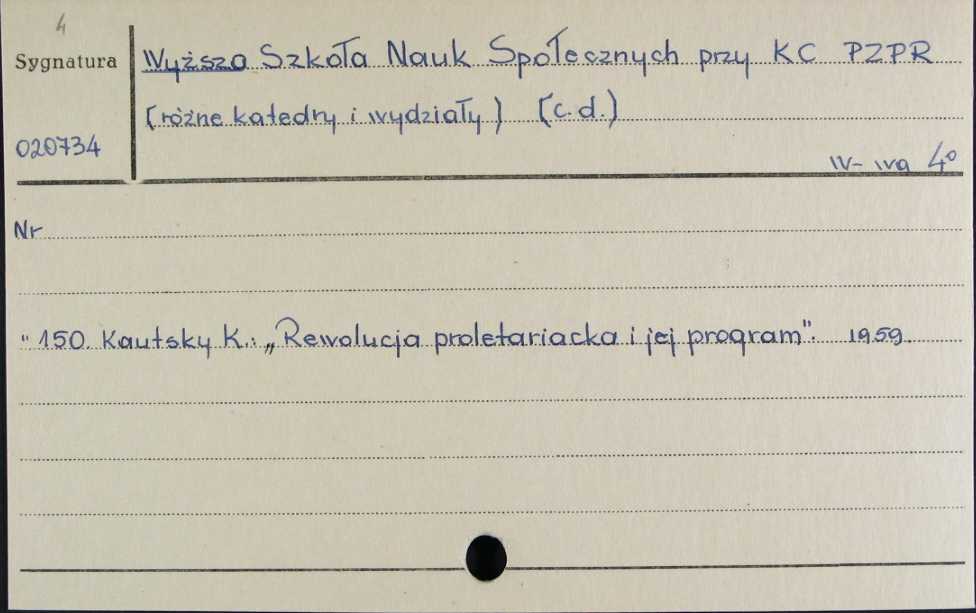 4
Sygnatura
Wyższa Szkoła Nauk Społecznych przy KC PZPR
(różne katedry i wydziały) (c.d.)
020734
W-wa 4°
Nr
" 150. Kautsky K.: „Rewolucja proletariacka i jej program". 1959.